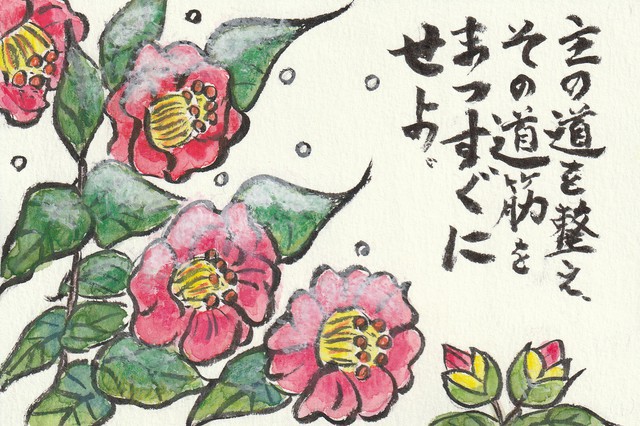 主の道を整え、
その道筋を
まっすぐに
せよ。